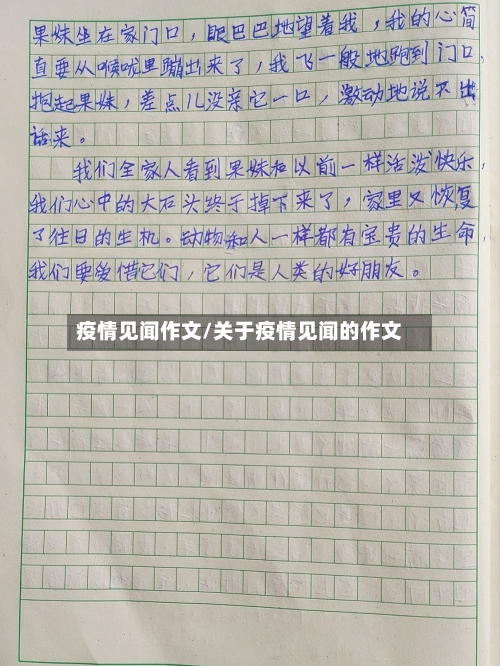 果妹坐在家门口，眼巴巴地望着我，我的心简
直要从喉咙里蹦出来了，我飞一般地跑到门口，
抱起果妹，差点儿没亲它一口，激动地说不出
话来。
我们全家人看到果妹和以前一样活泼快乐，
我们心中的大石头终于掉下来了，家里又恢复
了往日的生机。动物和人一样都有宝贵的生命，
我们要爱惜它们，它们是人类的好朋友。
疫情见闻作文/关于疫情见闻的作文